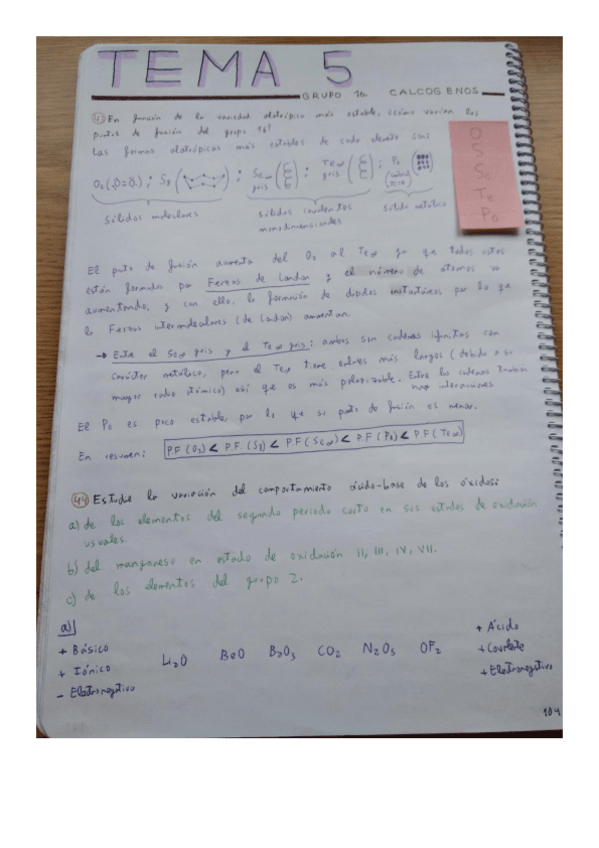 TEMA 5
GRUPO 16 CALCOGENOS
43 En función de la variedad alotrópica más estable, ¿cómo varían los
puntos de fusión del grupo 16?
Las formas alotrópicas más estables de cada elemento son:
O2 (O=O) ; S8 ; Se∞ gris ; Te∞ gris ; Po
Sólidos moleculares Sólidos covalentes monodimensionales Sólido metálico
O
S
Se
Te
Po
El punto de fusión aumenta del O2 al Te∞ ya que todos estos
están formados por Fuerzas de London y el número de átomos va
aumentando, y con ello, la formación de dipolos instantáneos por lo que
la Fuerzas intermoleculares (de London) aumentan.
→ Entre el Se∞ gris y el Te∞ gris: ambos son cadenas infinitas con
carácter metálico, pero el Te∞ tiene enlaces más largos (debido a su
mayor radio atómico) así que es más polarizable. Entre las cadenas también
hay interacciones
El Po es poco estable, por lo que su punto de fusión es menor.
En resumen: P.F (O2) < P.F. (S8) < P.F (Se∞) < P.F (Po) < P.F (Te∞)
44 Estudie la variación del comportamiento ácido-base de los óxidos:
a) de los elementos del segundo periodo corto en sus estados de oxidación
usuales.
b) del manganeso en estado de oxidación II, III, IV, VII.
c) de los elementos del grupo 2.
a)
+ Básico
+ Iónico
- Electronegativo
Li2O BeO B2O3 CO2 N2O5 OF2
+ Ácido
+ Covalente
+ Electronegativo
104